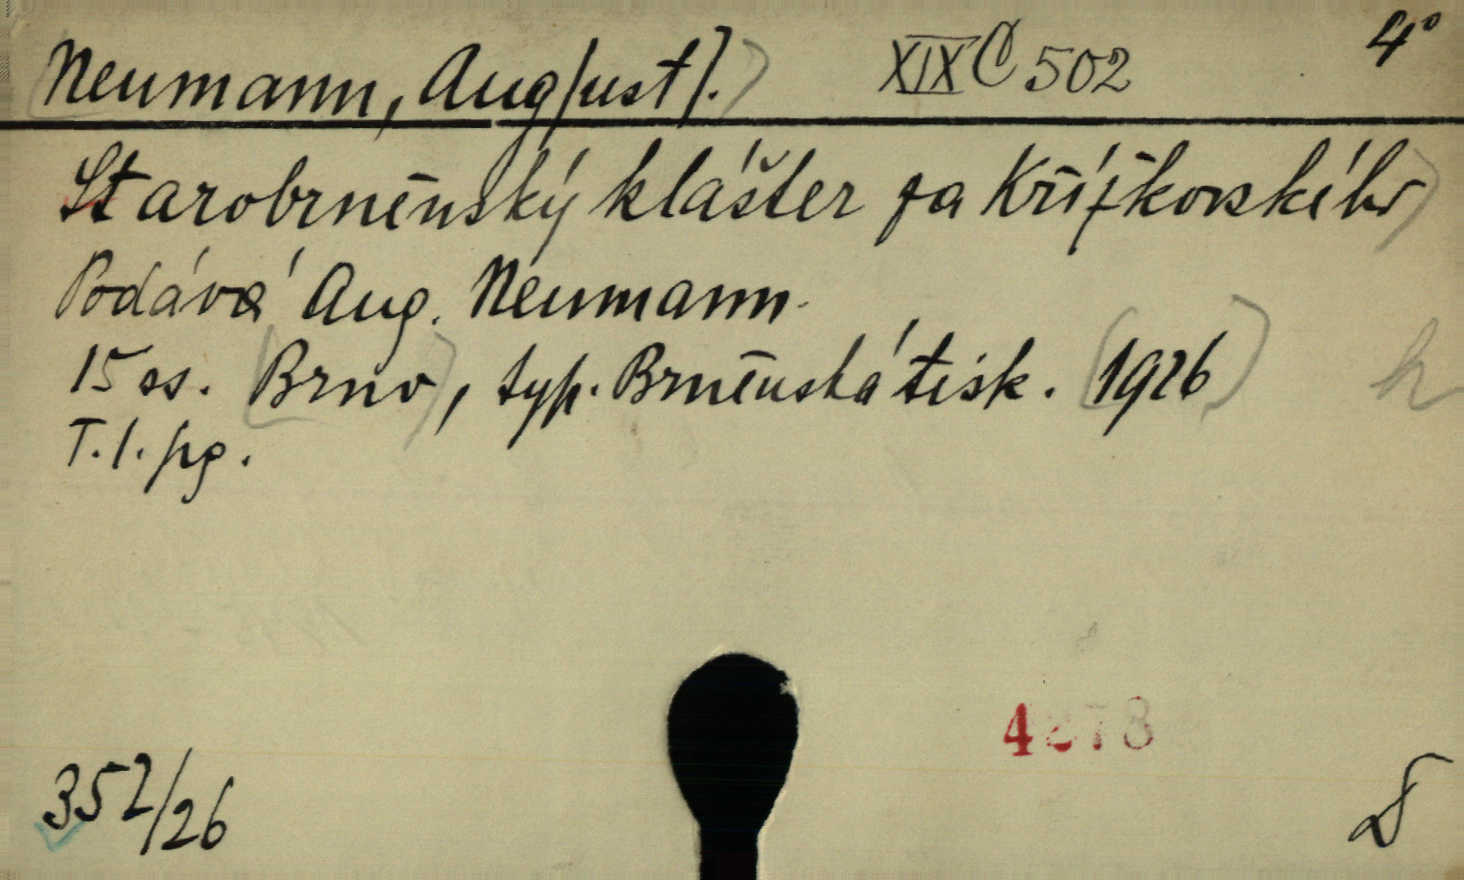 Neumann, Aug/ust/. XIX C 502 4°
Starobrněnský klášter za Křížkovského
Podává Aug. Neumann.
15 ss. Brno, typ. Brněnská tisk. 1926
T. 1. pg.
4278
352/26